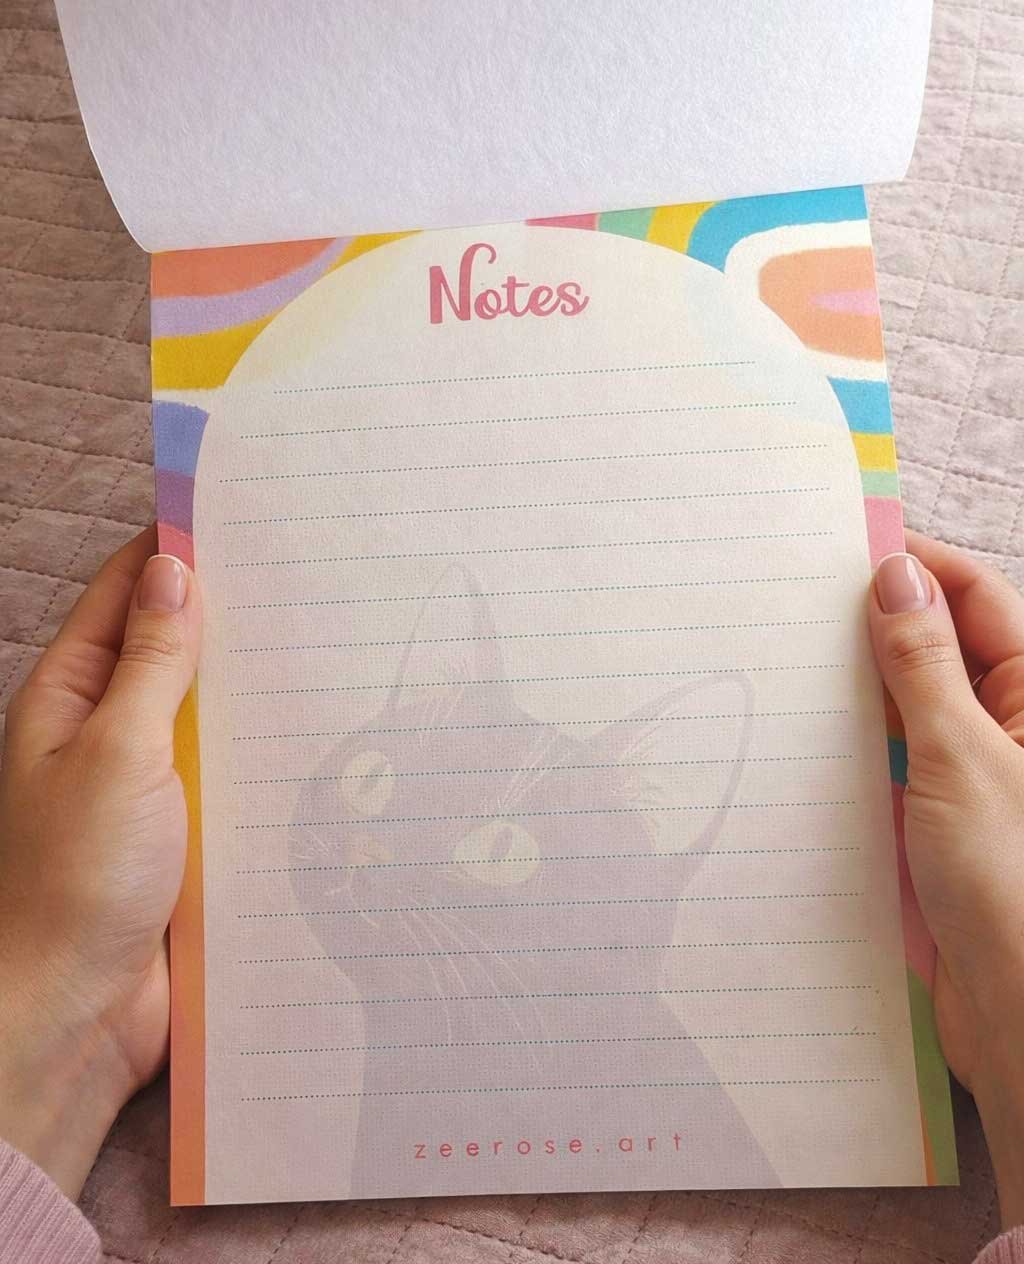 Notes
zeerose.art